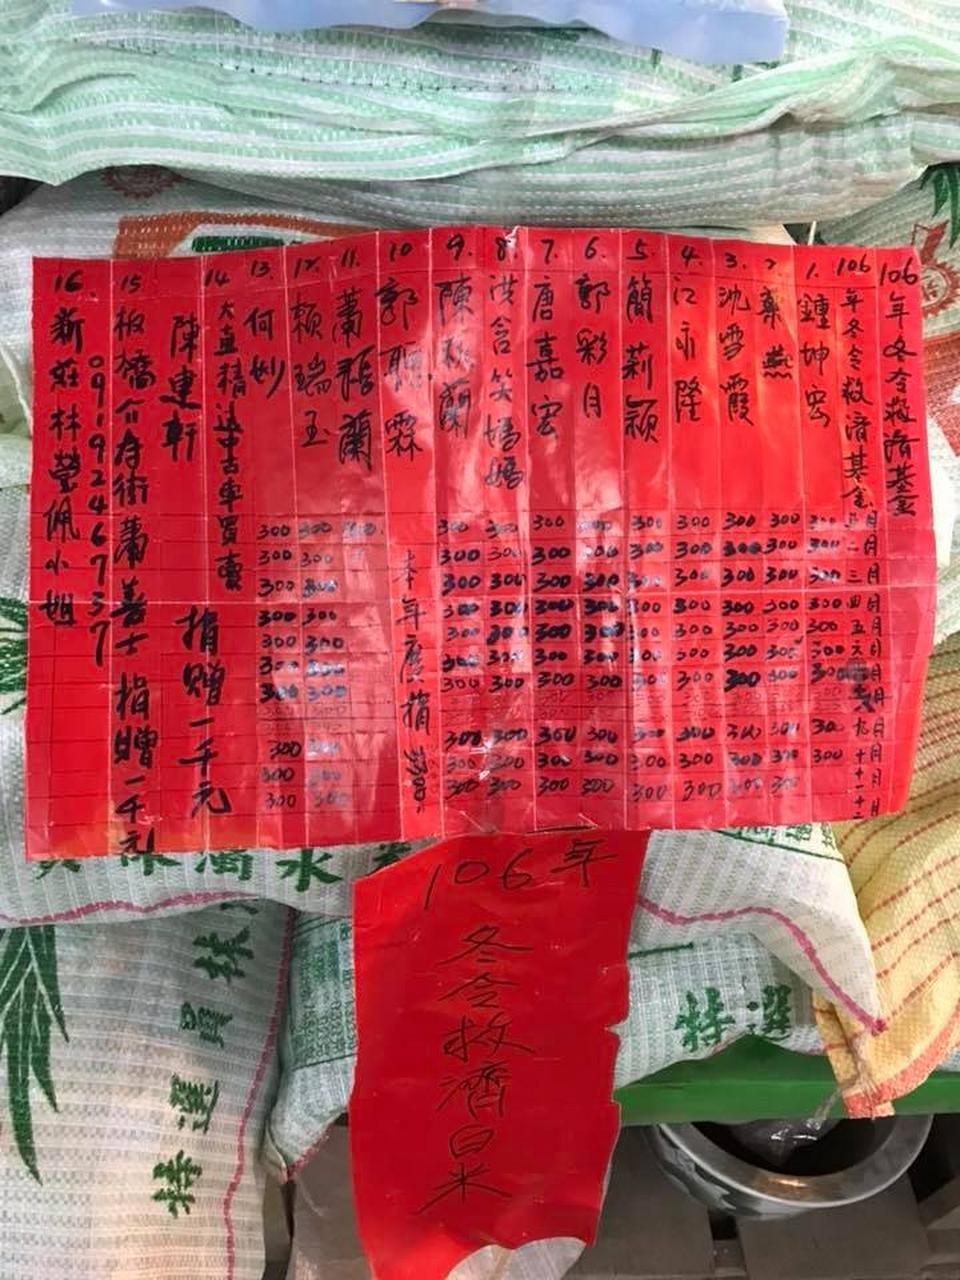 106年冬令救濟基金
106年冬令救濟基金 二月 三月 四月 五月 六月 九月 十月 十一月 十二月
1. 鍾坤宏 300 300 300 300 300 300 300 300 300
2. 燕 300 300 300 300 300 300 300 300 300 300
3. 沈雪霞 300 300 300 300 300 300 300 300 300 300
4. 江永隆 300 300 300 300 300 300 300 300 300 300
5. 簡莉穎 300 300 300 300 300 300 300 300 300 300
6. 郭彩月 300 300 300 300 300 300 300 300 300 300
7. 唐嘉宏 300 300 300 300 300 300 300 300 300 300
8. 洪含笑媽媽 300 300 300 300 300 300 300 300 300 300
9. 陳 蘭 300 300 300 300 300 300 300 300 300 300
10 郭聰霖 本年度捐
11. 蕭 蘭
12. 賴瑞玉 300 300 300 300 300 300 300 300 300 300
13. 何妙 300 300 300 300 300 300 300 300 300 300
14 大直精 中古車買賣
陳連軒 捐贈一千元
15 板橋介壽街蕭善士捐贈一千元
0919246737
16. 新莊林瑩佩小姐
106年
冬令救濟白米
特選
特選